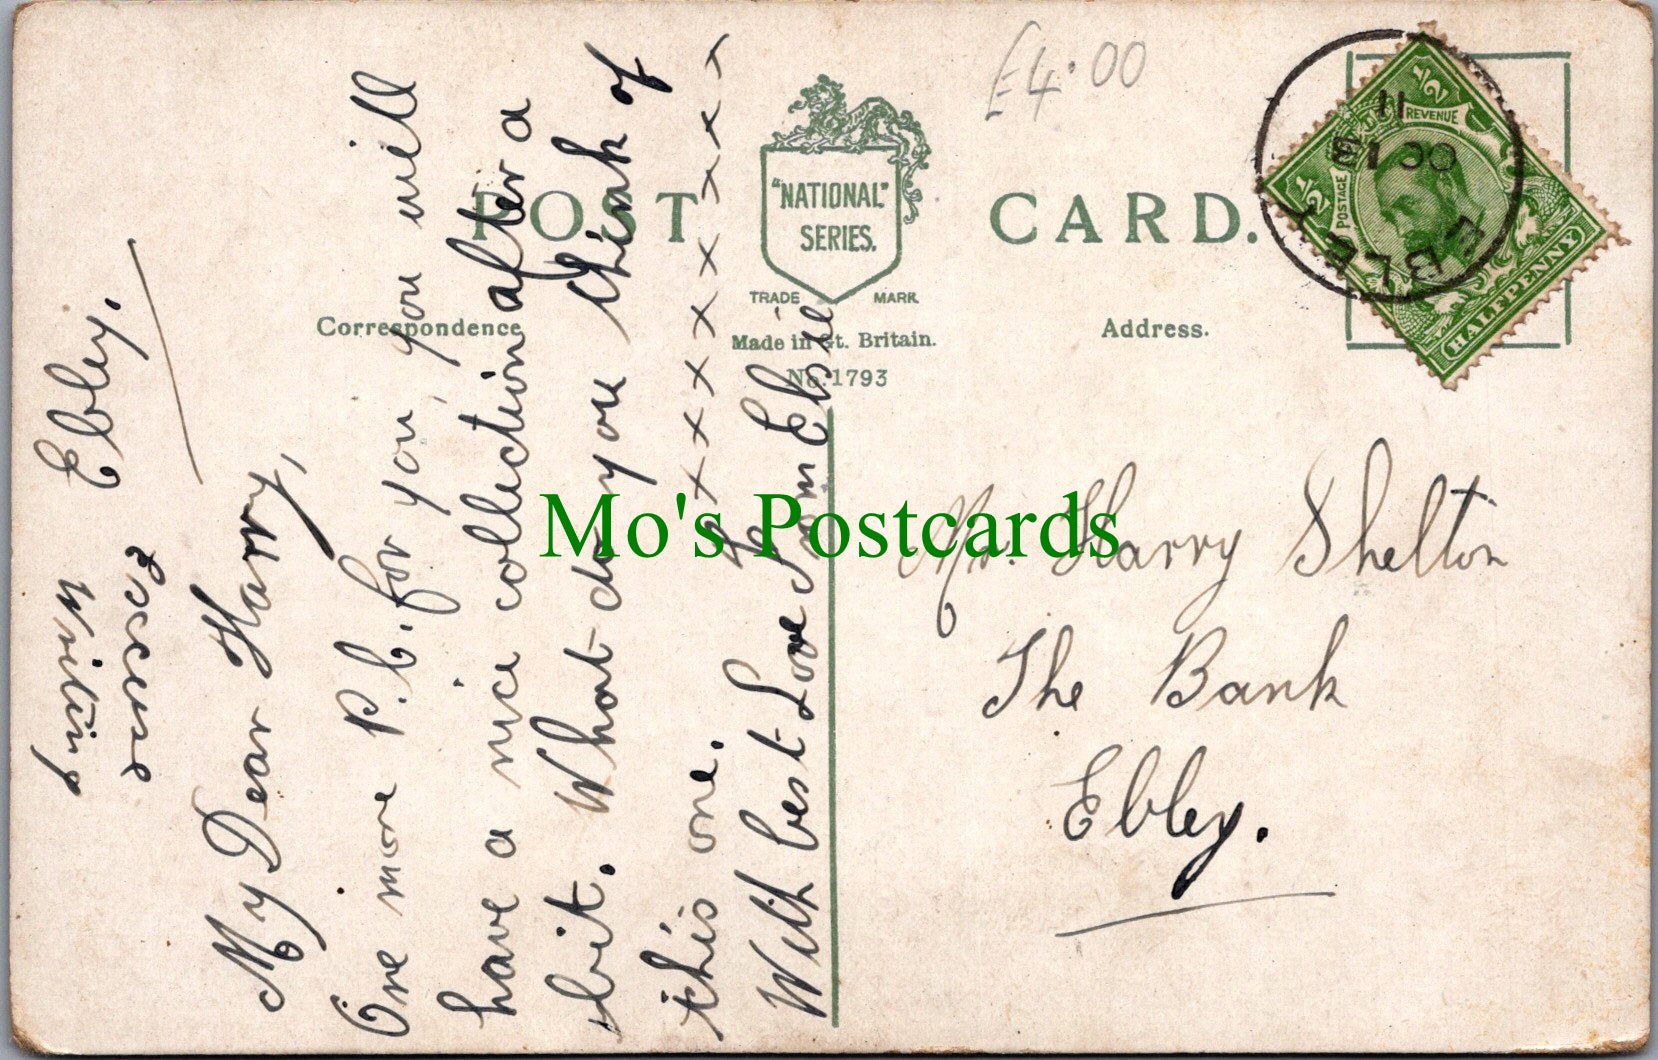 £4.00
POST CARD.
"NATIONAL"
SERIES.
TRADE MARK
Correspondence
Made in Gt. Britain.
No. 1793
Address.
1/2 REVENUE
1/2 POSTAGE
HALFPENNY
EBLEY
11
Ebley.
Excuse
Writing
My Dear Harry,
One more P.C. for you, you will
have a nice collection after a
bit. What do you think of
this one. x x x x x x x x x x
With best Love From Elsie
Mr. Harry Shelton
The Bank
Ebley.
Mo's Postcards